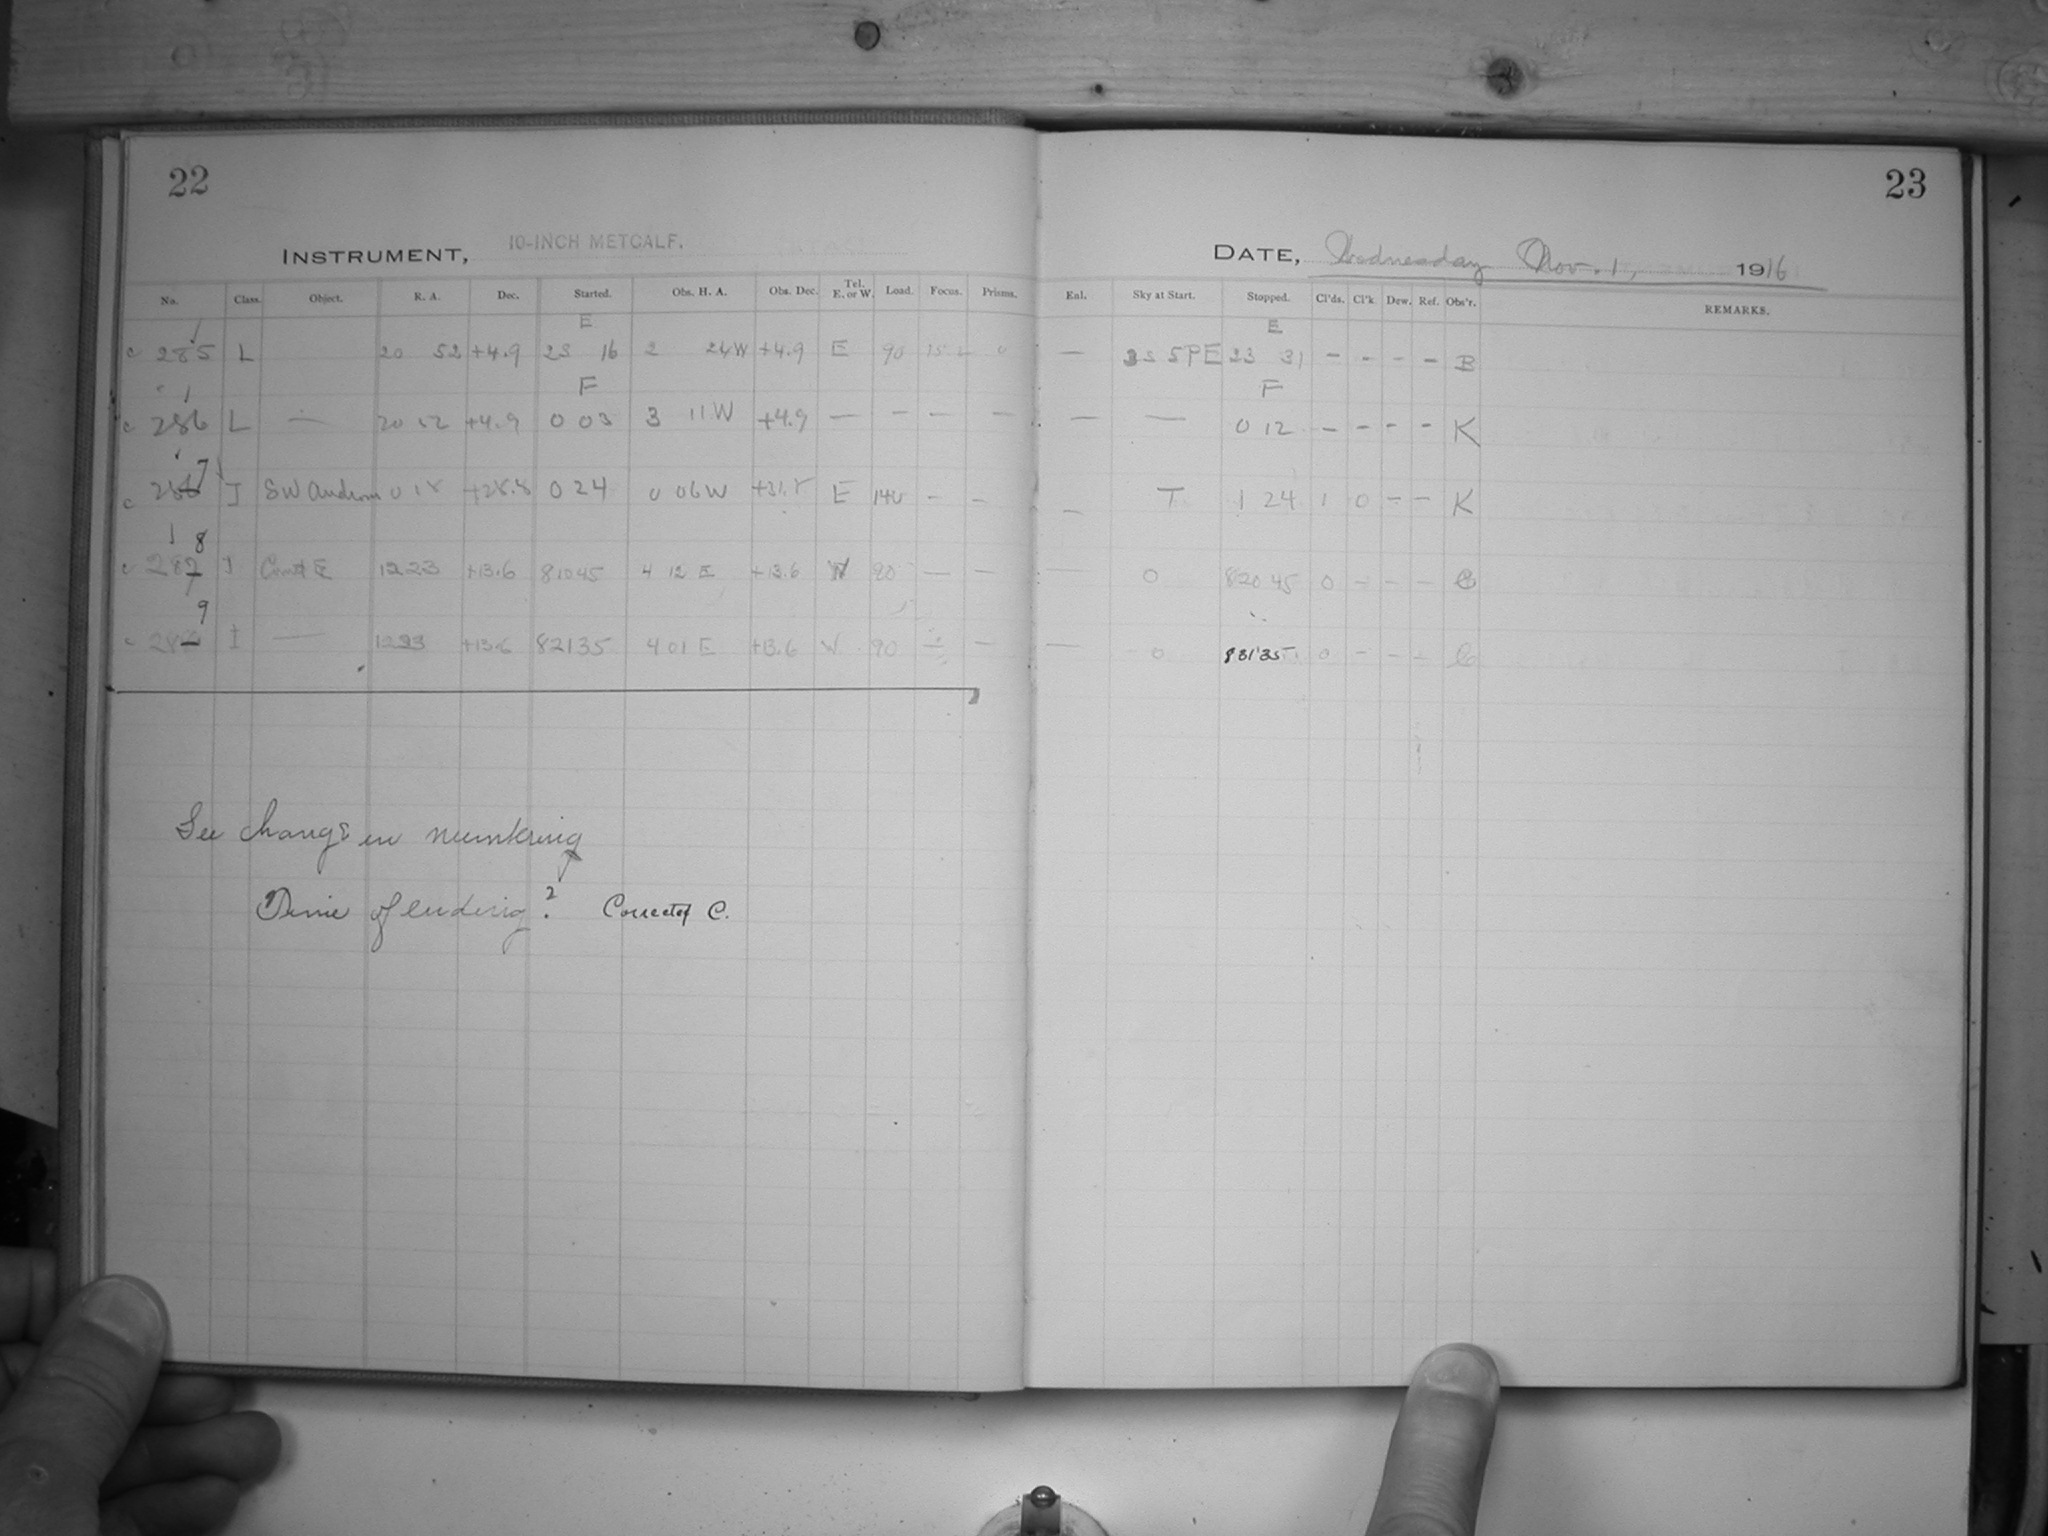 22
23
INSTRUMENT, 10-INCH METCALF.
DATE, Wednesday Nov. 1, 1916
No. Class. Object. R. A. Dec. Started. Obs. H. A. Obs. Dec. Tel. E. or W. Load. Focus. Prisms. Enl. Sky at Start. Stopped. Cl'ds. Cl'k Dew. Ref. Obs'r. REMARKS.
E E
c 285 L 20 52 +4.9 23 16 2 24W +4.9 E 90 0 — 5PE 23 31 - - - - B
F F
c 286 L — 20 52 +4.9 0 03 3 11W +4.9 — — — — — — 0 12 - - - - K
7
c 286 I SW Androm 0 18 +28.8 0 24 0 06W E 140 - - - T 1 24 1 0 - - K
8
c 287 I 12 23 +13.6 8 10 45 4 12 E +13.6 W 90 — — — 0 8 20 45 0 - - - C
9
c 288 I — 12 23 +13.6 8 21 35 4 01 E +13.6 W 90 — — — 0 8 31 35 0 - - - C
See change in numbering
Time of ending? Corrected C.